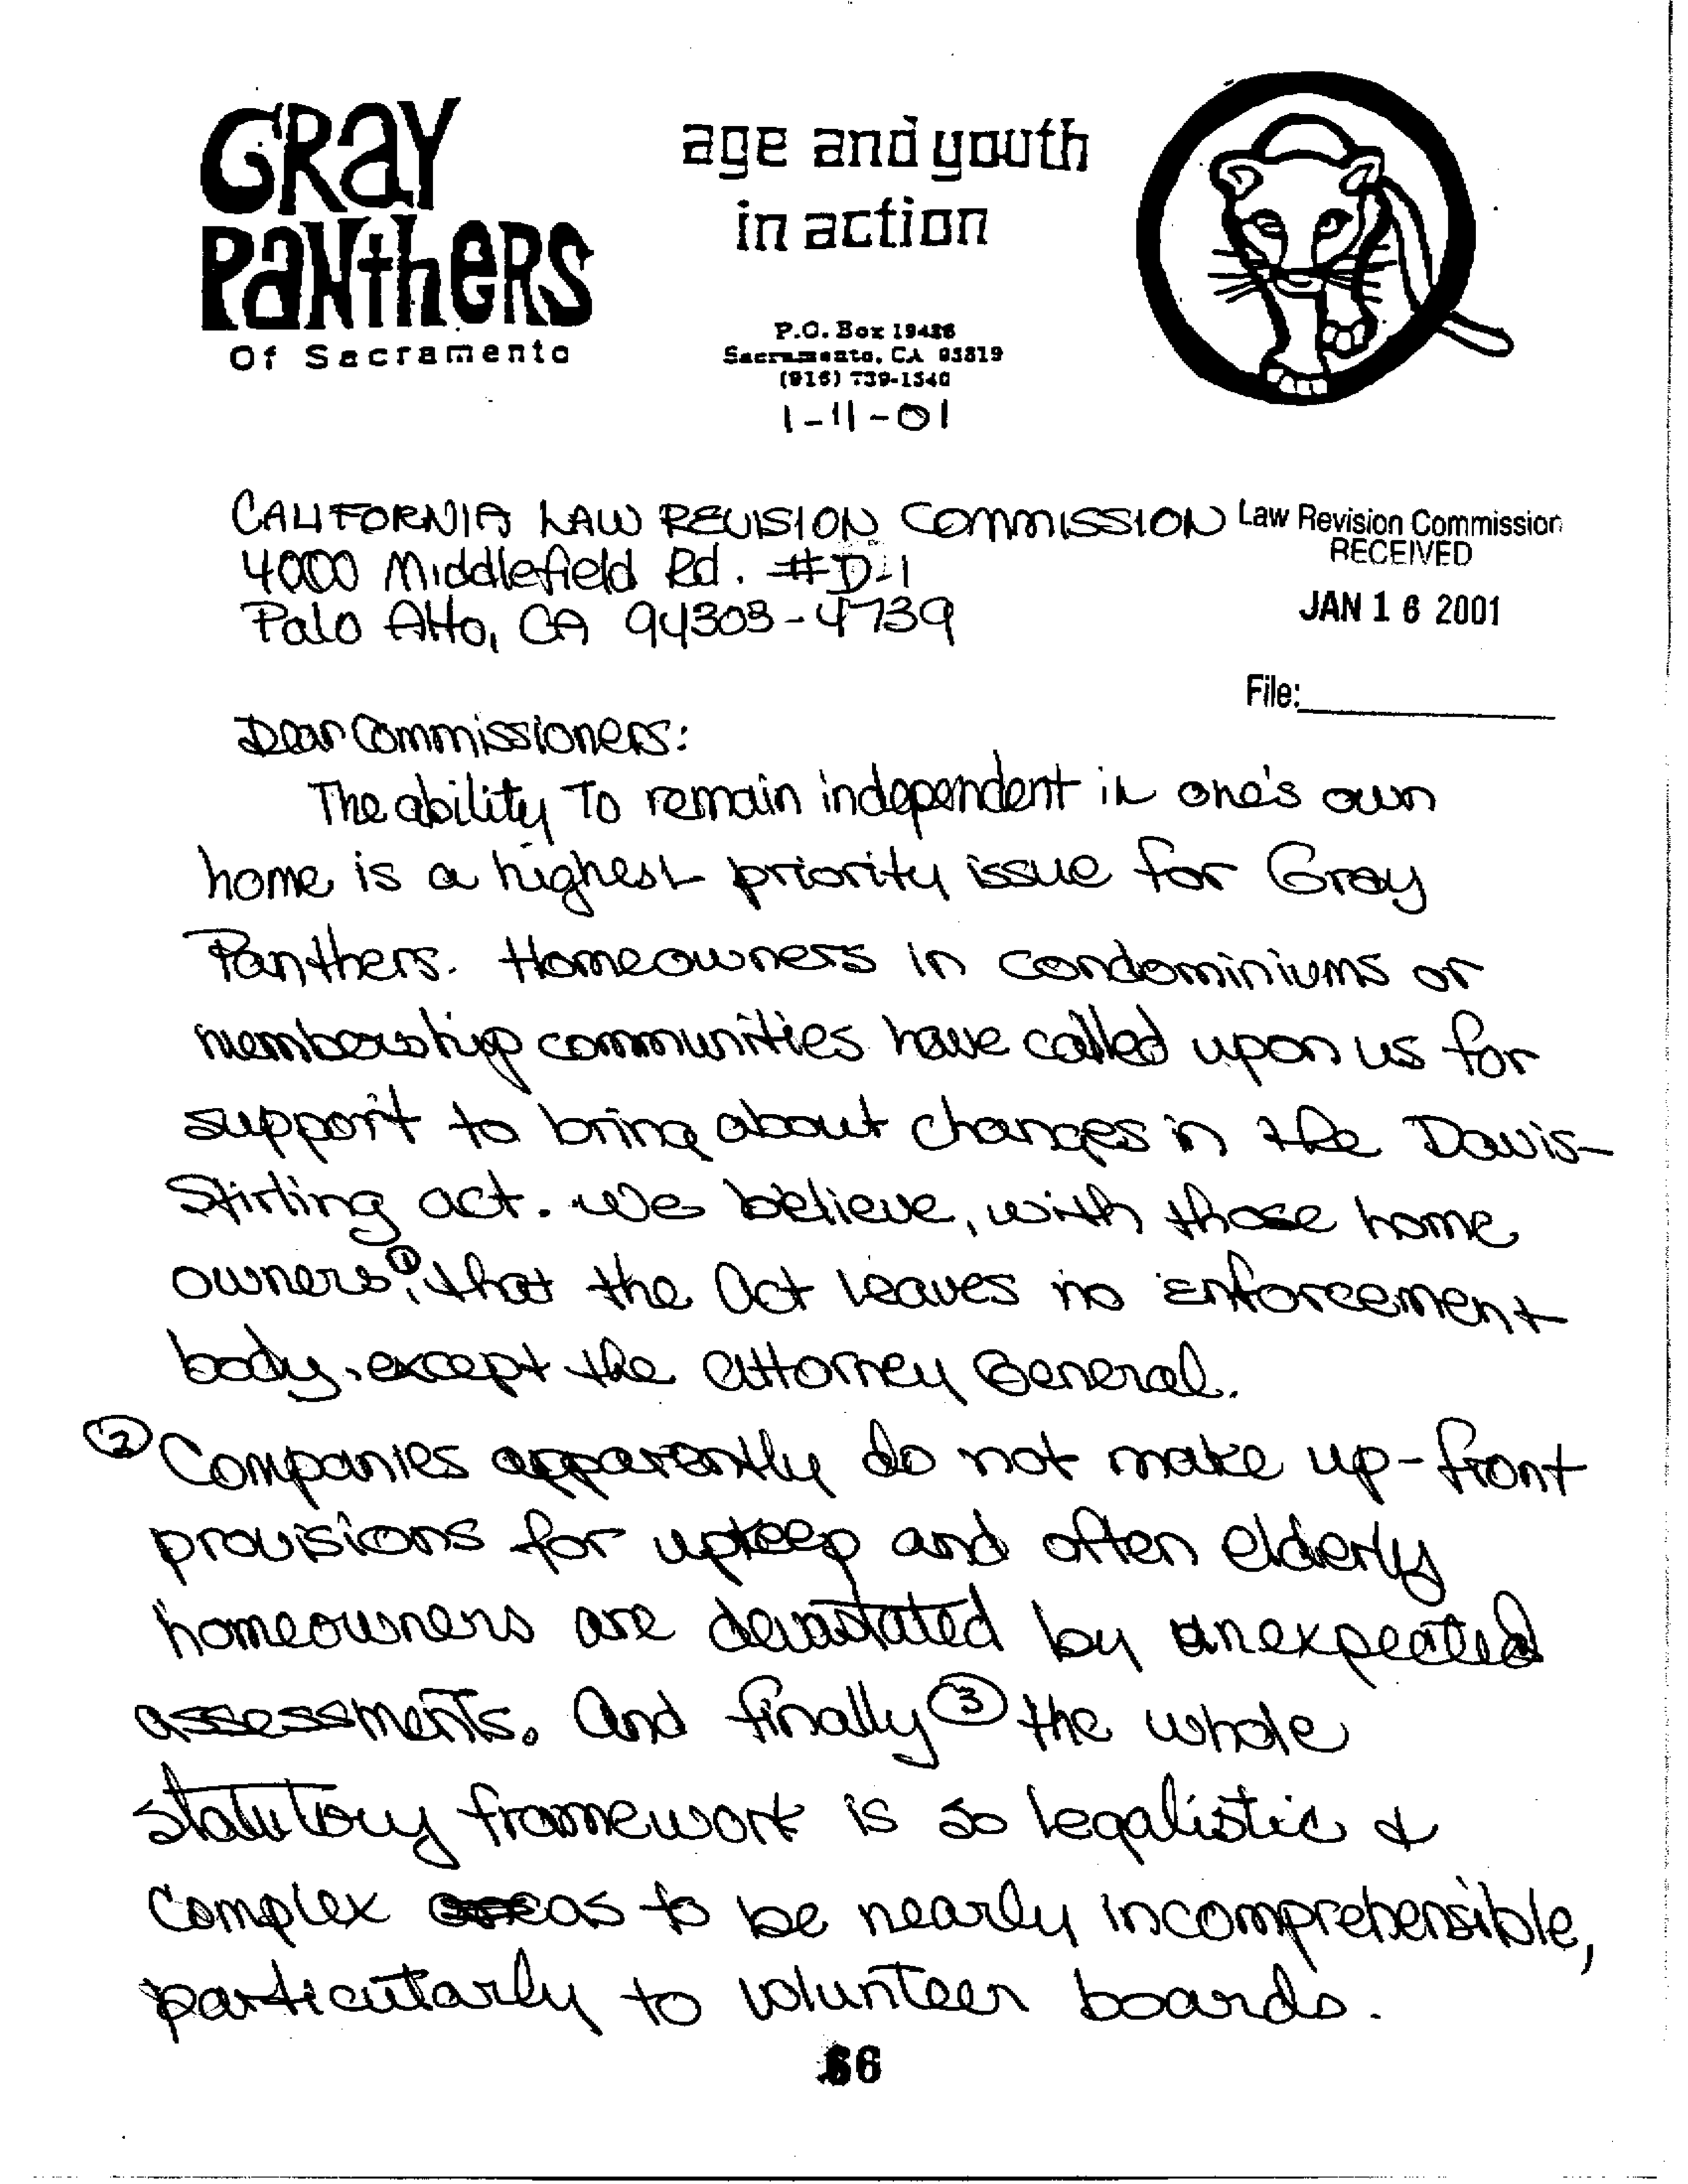 GRAY
PANTHERS
Of Sacramento
age and youth
in action
P.O. Box 19438
Sacramento, CA 95819
(916) 739-1540
1-11-01
CALIFORNIA LAW REVISION COMMISSION
4000 Middlefield Rd. #D-1
Palo Alto, CA 94303-4739
Law Revision Commission
RECEIVED
JAN 16 2001
File:
Dear Commissioners:
The ability To remain independent in one's own
home is a highest priority issue for Gray
Panthers. Homeowners in condominiums or
membership communities have called upon us for
support to bring about changes in the Davis-
Stirling act. We believe, with those home
owners, ① that the Act leaves no enforcement
body, except the Attorney General.
② Companies apparently do not make up-front
provisions for upkeep and often elderly
homeowners are devastated by unexpected
assessments. And finally ③ the whole
statutory framework is so legalistic &
complex as to be nearly incomprehensible,
particularly to volunteer boards.
66